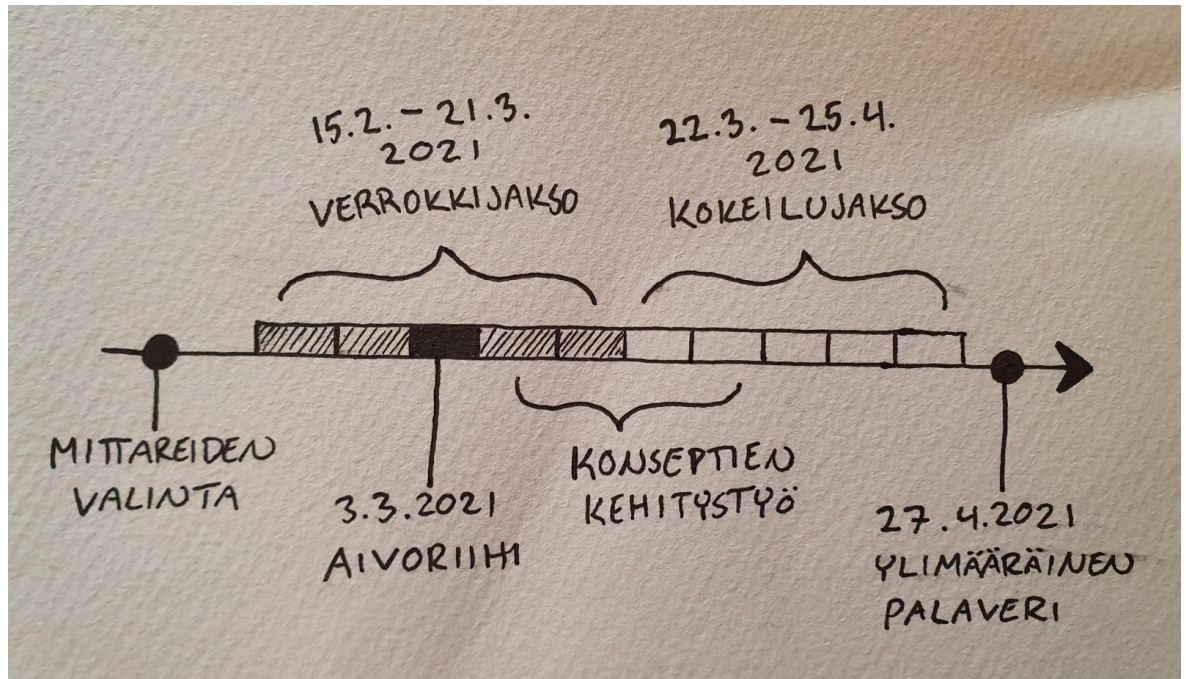 15.2. – 21.3.
2021
VERROKKIJAKSO
22.3. – 25.4.
2021
KOKEILUJAKSO
MITTAREIDEN
VALINTA
3.3.2021
AIVORIIHI
KONSEPTIEN
KEHITYSTYÖ
27.4.2021
YLIMÄÄRÄINEN
PALAVERI